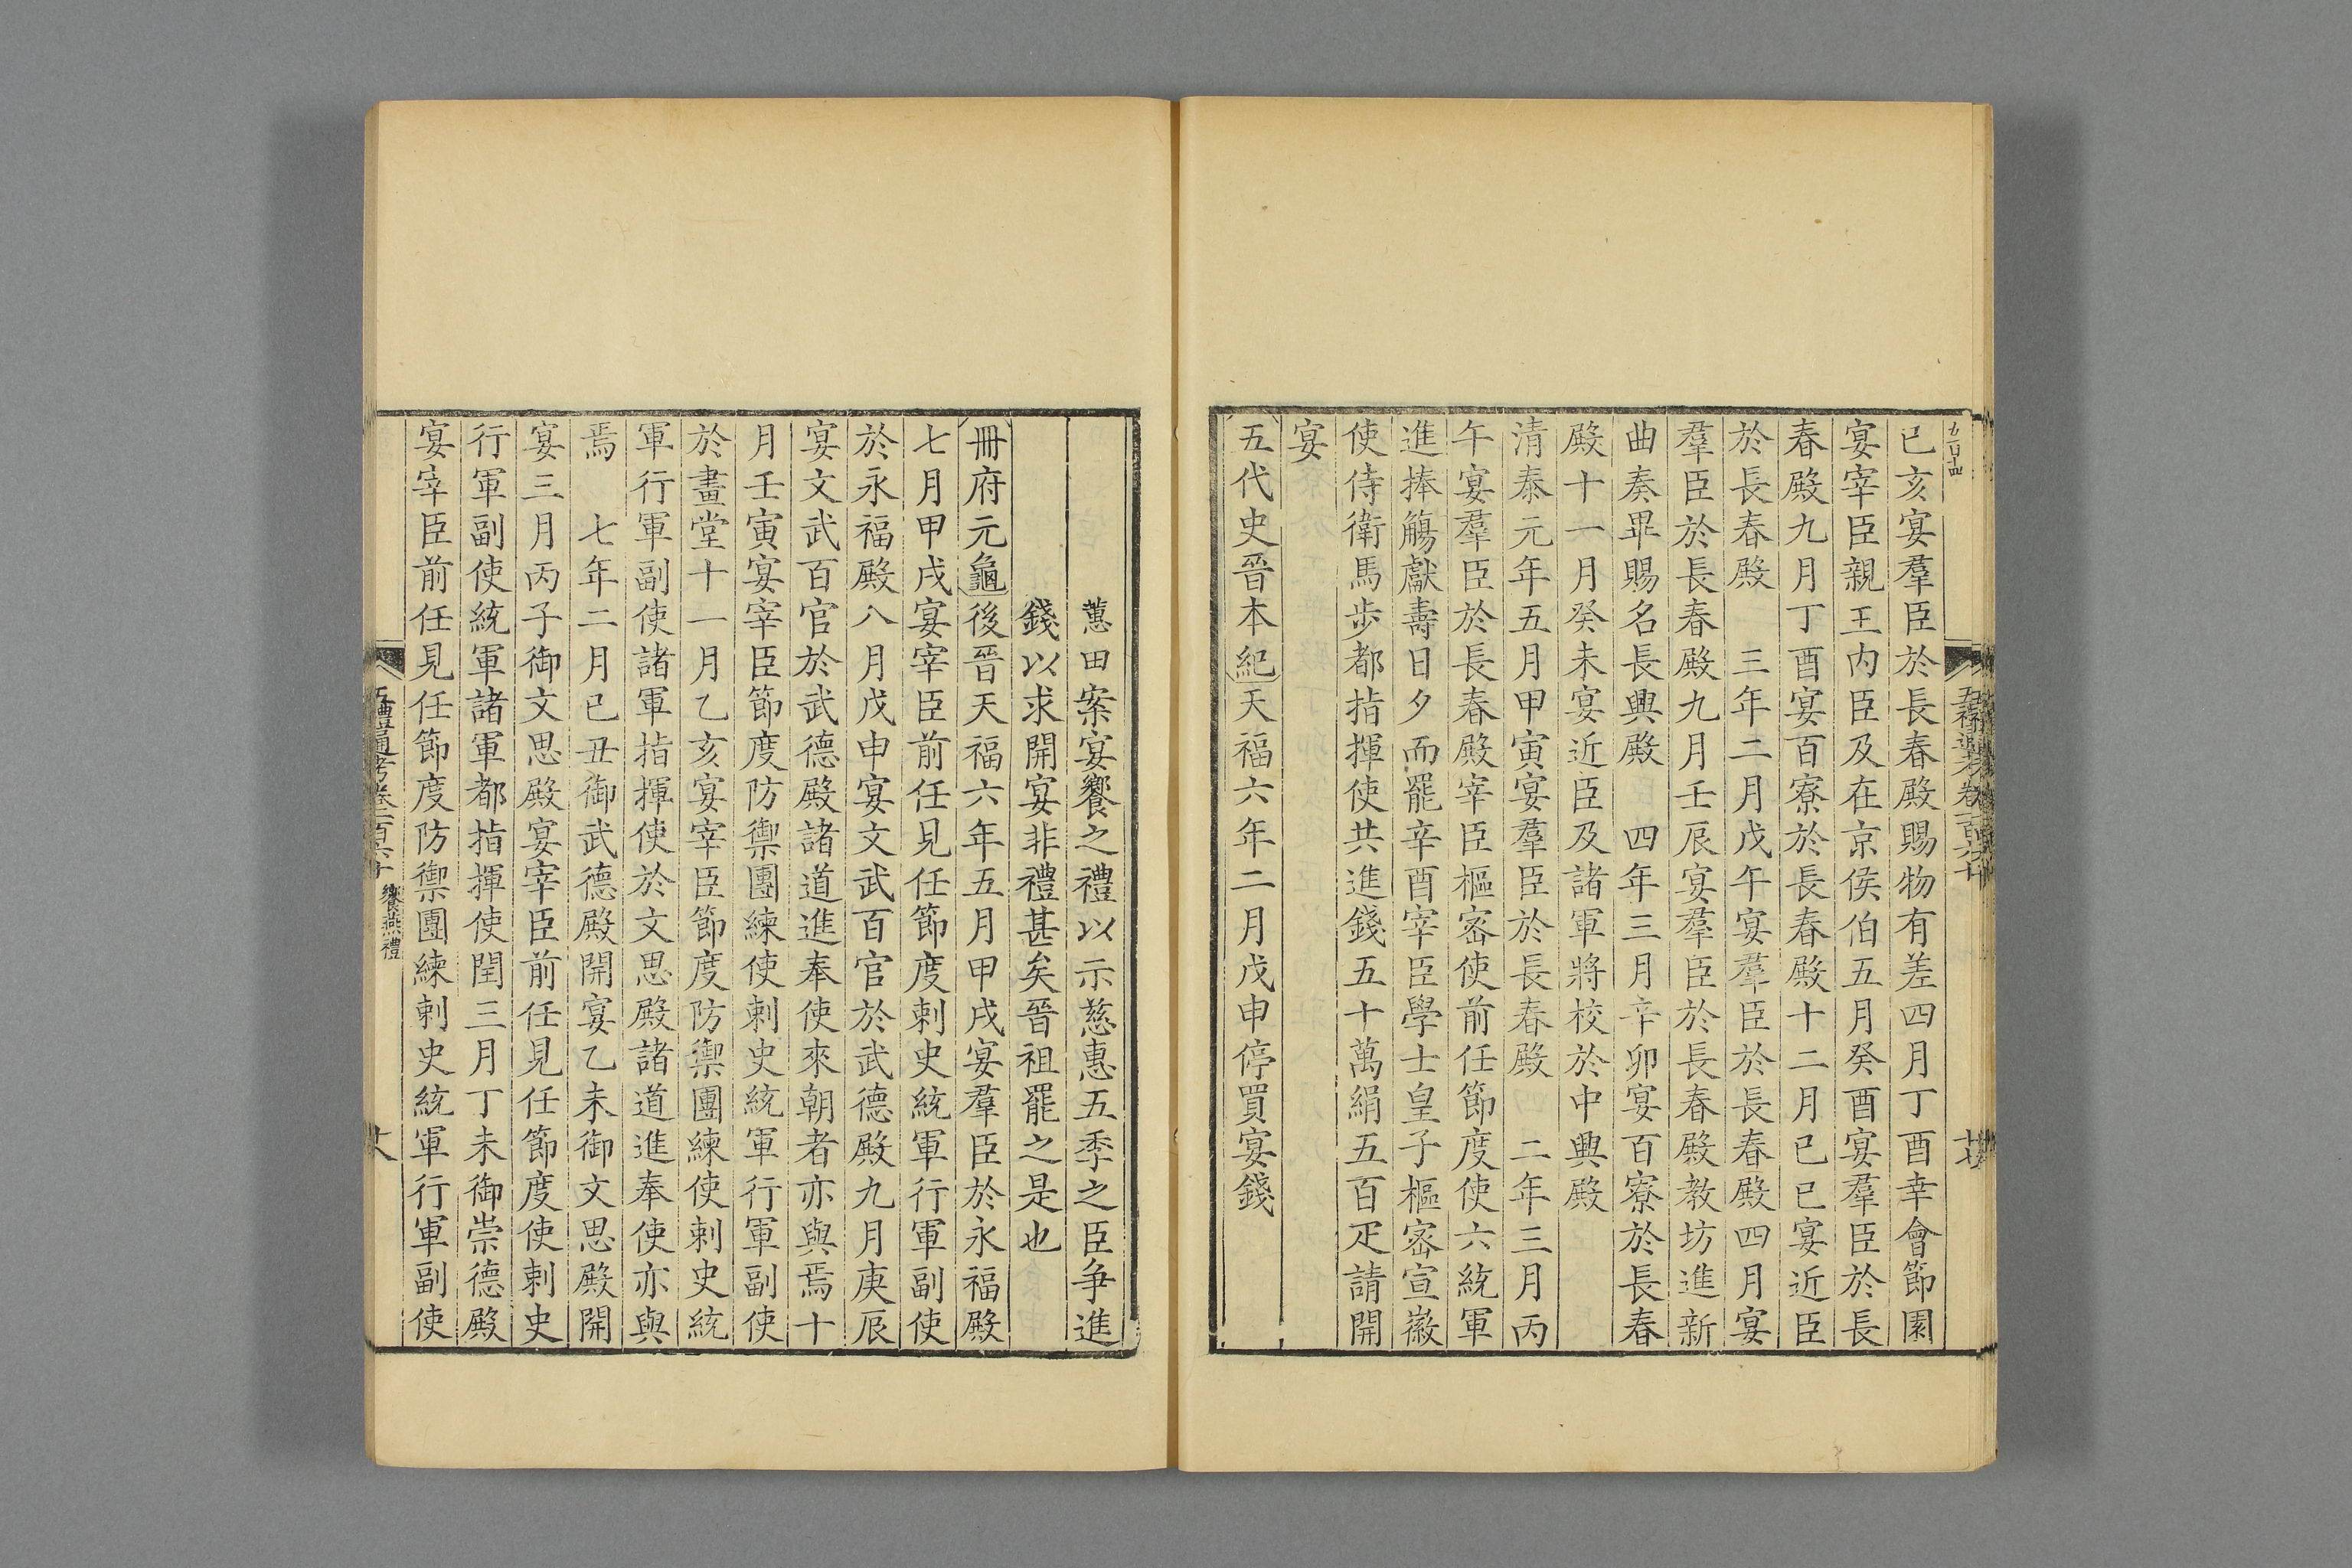 已亥宴羣臣於長春殿賜物有差四月丁酉幸會節園
宴宰臣親王内臣及在京侯伯五月癸酉宴羣臣於長
春殿九月丁酉宴百寮於長春殿十二月已巳宴近臣
於長春殿　三年二月戊午宴羣臣於長春殿四月宴
羣臣於長春殿九月壬辰宴羣臣於長春殿教坊進新
曲奏畢賜名長興殿　四年三月辛卯宴百寮於長春
殿十一月癸未宴近臣及諸軍將校於中興殿
清泰元年五月甲寅宴羣臣於長春殿　二年三月丙
午宴羣臣於長春殿宰臣樞密使前任節度使六統軍
進捧觴獻壽日夕而罷辛酉宰臣學士皇子樞密宣徽
使侍衛馬步都指揮使共進錢五十萬絹五百疋請開
宴
五代史晉本紀天福六年二月戊申停買宴錢
蕙田案宴饗之禮以示慈惠五季之臣争進
錢以求開宴非禮甚矣晉祖罷之是也
冊府元龜後晉天福六年五月甲戌宴羣臣於永福殿
七月甲戌宴宰臣前任見任節度剌史統軍行軍副使
於永福殿八月戊申宴文武百官於武德殿九月庚辰
宴文武百官於武德殿諸道進奉使來朝者亦與焉十
月壬寅宴宰臣節度防禦團練使剌史統軍行軍副使
於畫堂十一月乙亥宴宰臣節度防禦團練使剌史統
軍行軍副使諸軍指揮使於文思殿諸道進奉使亦與
焉　七年二月已丑御武德殿開宴乙未御文思殿開
宴三月丙子御文思殿宴宰臣前任見任節度使剌史
行軍副使統軍諸軍都指揮使閏三月丁未御崇德殿
宴宰臣前任見任節度防禦團練剌史統軍行軍副使
五禮通考卷一百六十　饗燕禮